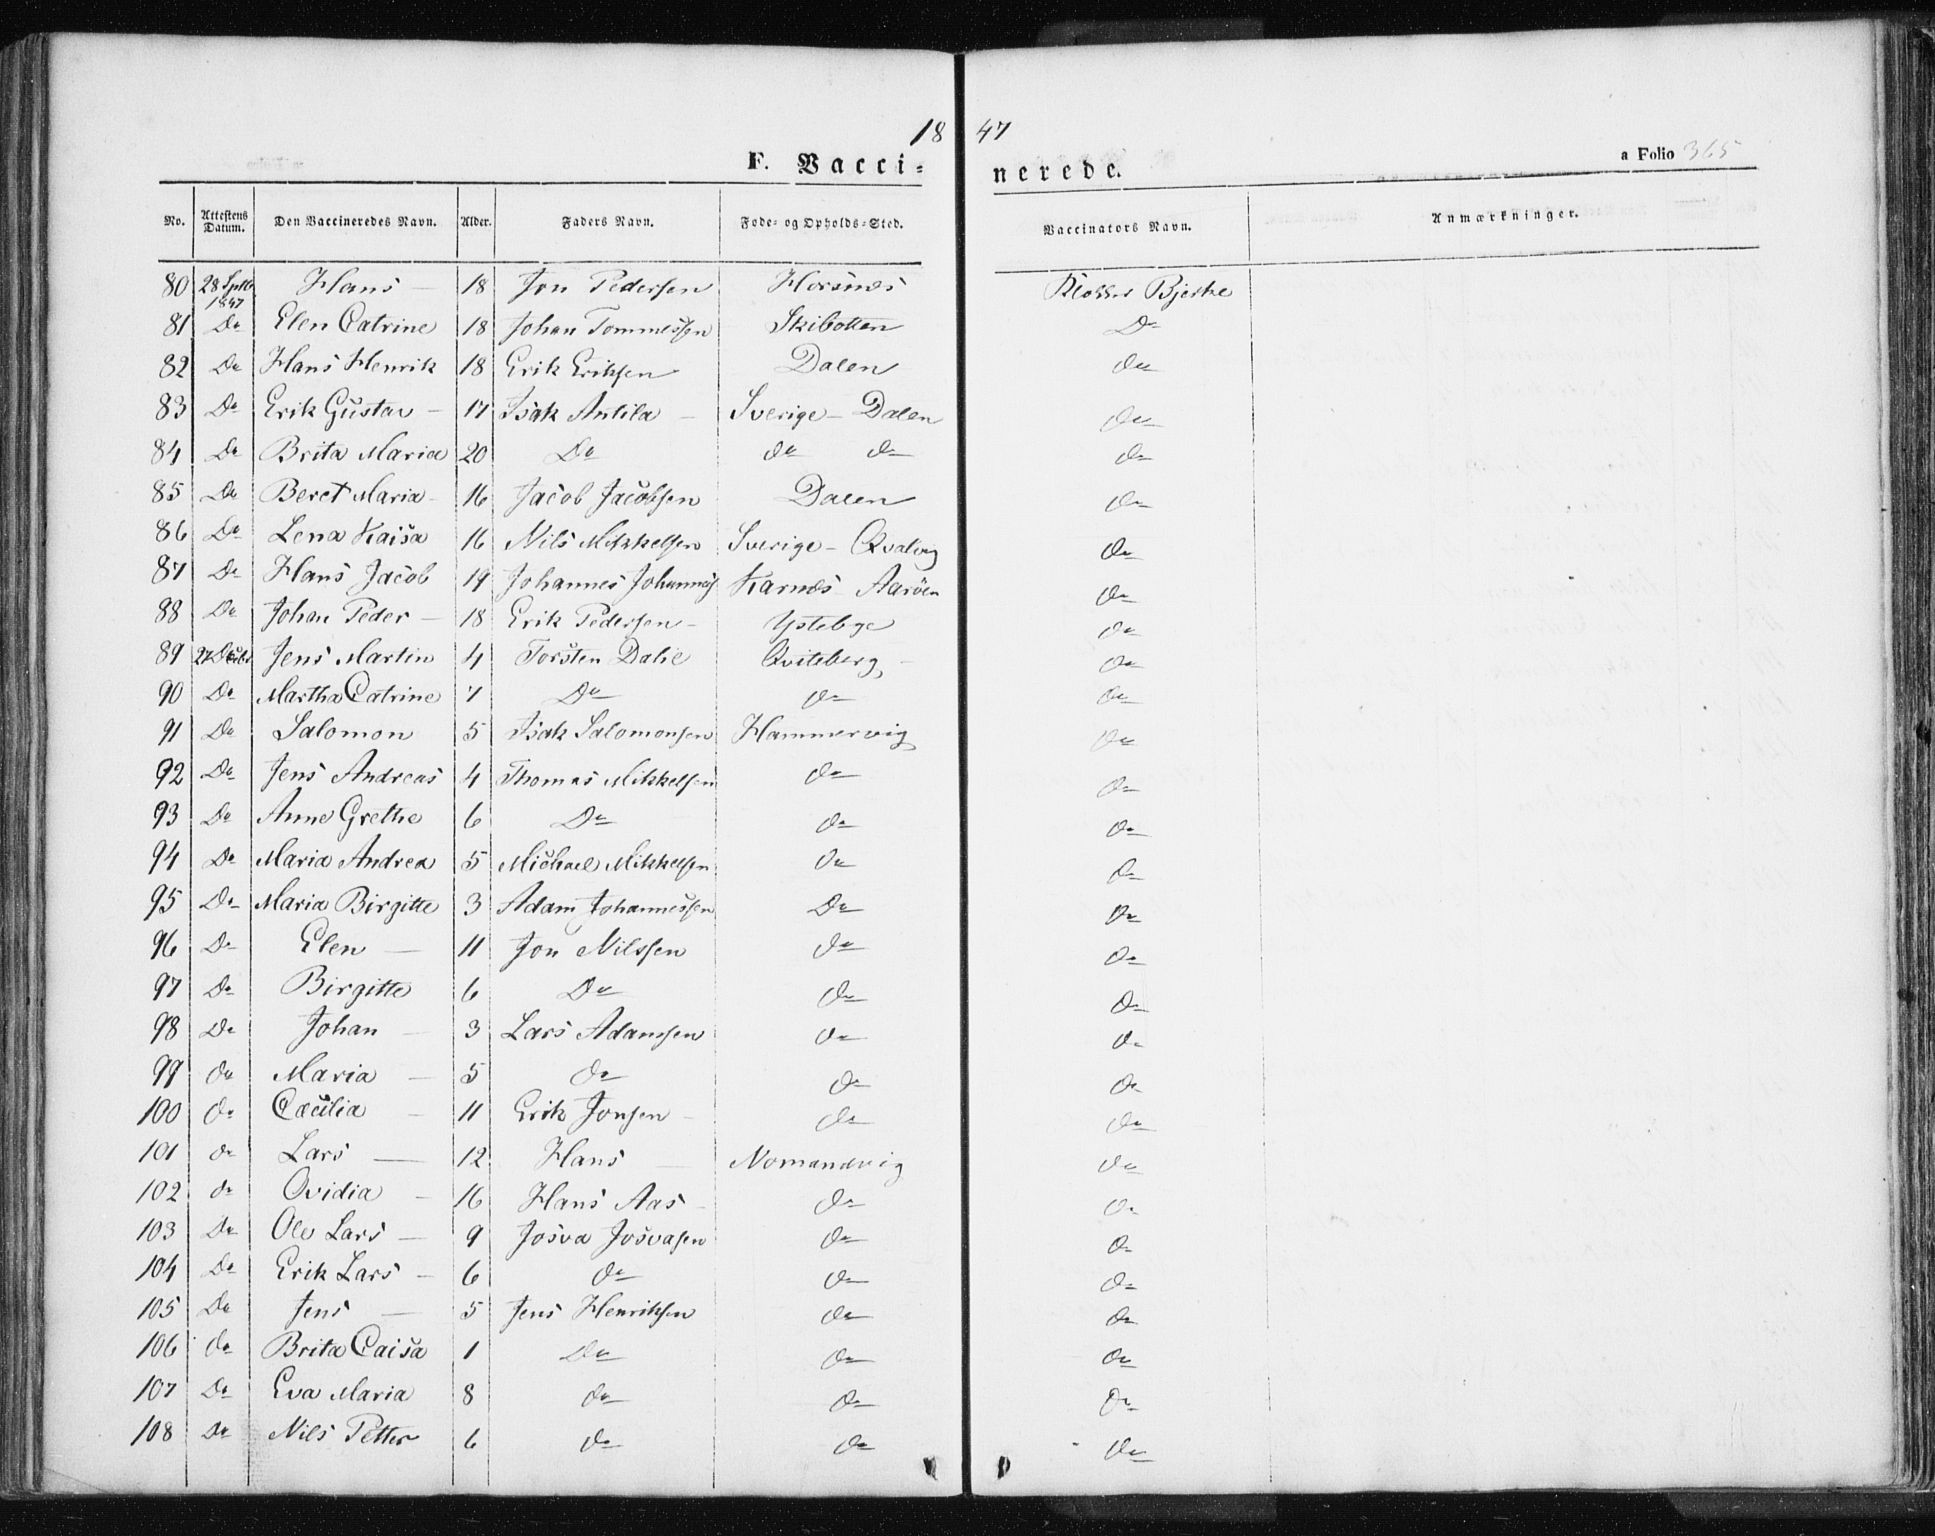 18 47
F. Vacci= nerede.
a Folio 365
No. Attestens Datum. Den Vaccineredes Navn. Alder. Faders Navn. Føde- og Opholds-Sted. Vaccinators Navn. Anmærkninger.
80 28 Septb 1847 Hans — 18 Jon Pedersen Horsnes Klokker Bjerke
81 Do Elen Catrine 18 Johan Tommessen Skibotten Do
82 Do Hans Henrik 18 Erik Eriksen Dalen do
83 Do Erik Gustav — 17 Isak Antila — Sverige — Dalen do
84 Do Brita Maria 20 Do do do do
85 Do Beret Maria 16 Jacob Jacobsen Dalen do
86 Do Lena Kaisa 16 Nils Mikkelsen Sverige — Qvalvig do
87 Do Hans Jacob 19 Johannes Johannes Karnæs Aarøen do
88 Do Johan Peder — 18 Erik Pedersen — Ystebye do
89 27 Decbr Jens Martin 4 Torsten Dalie Qviteberg — do
90 Do Martha Catrine 7 Do do do
91 Do Salomon 5 Isak Salomonsen Hammervig do
92 Do Jens Andreas 4 Thomas Mikkelsen do do
93 Do Anne Grethe 6 Do do do
94 Do Maria Andrea 5 Michael Mikkelsen do do
95 Do Maria Birgitte 3 Adam Johannessen Do do
96 Do Elen — 11 Jon Nilssen do do
97 Do Birgitte 6 Do do do
98 Do Johan — 3 Lars Adamsen do do
99 do Maria — 5 do do do
100 do Cæcilia — 11 Erik Jonsen — do do
101 do Lars — 12 Hans — Nomandvig do
102 do Ovidia — 16 Hans Aas — do do
103 Do Ole Lars — 9 Josva Josvasen do do
104 Do Erik Lars — 6 do do do
105 Do Jens — 5 Jens Henriksen do do
106 do Brita Caisa 1 Do do do
107 Do Eva Maria 8 do do do
108 Do Nils Petter 6 do do do